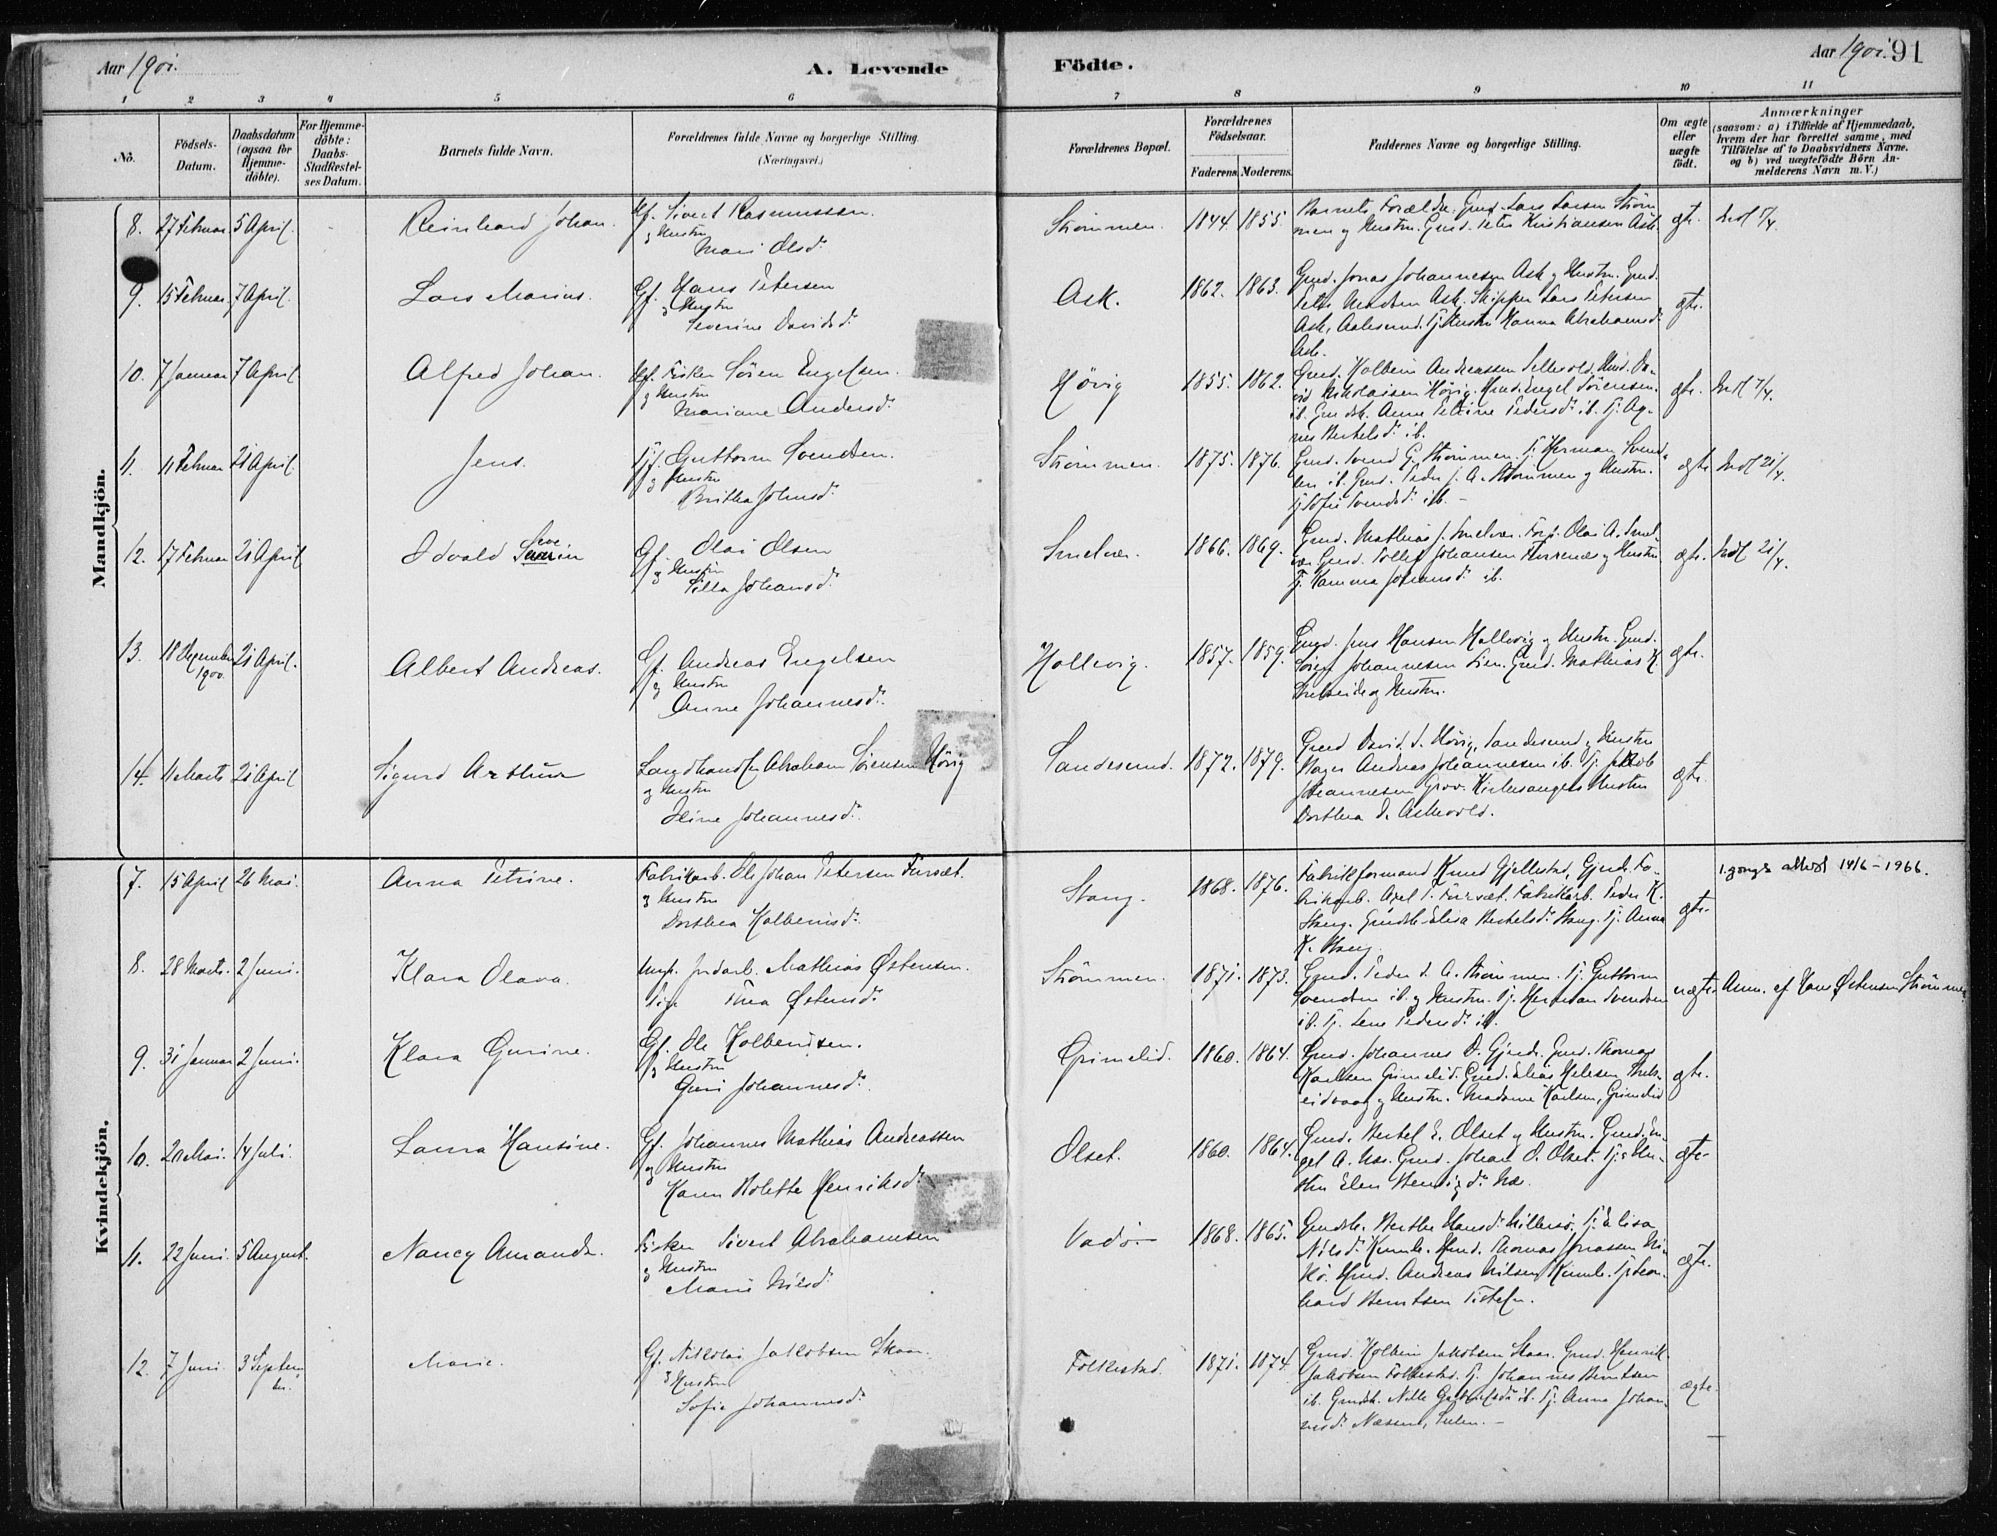 Aar 1901.
A. Levende
Födte.
Aar 1901.
91
1 2 3 4 5 6 7 8 9 10 11
No.
Födsels-
Datum.
Daabsdatum
(ogsaa for
Hjemme-
döbte).
For Hjemme-
döbte:
Daabs-
Stadfæstel-
ses Datum.
Barnets fulde Navn.
Forældrenes fulde Navne og borgerlige Stilling.
(Næringsvei.)
Forældrenes Bopæl.
Forældrenes
Födselsaar.
Faderens. Moderens.
Faddernes Navne og borgerlige Stilling.
Om ægte
eller
uægte
födt.
Anmærkninger
(saasom: a) i Tilfælde af Hjemmedaab,
hvem der har forrettet samme, med
Tilföielse af to Daabsvidners Navne.
og b) ved uægtefödte Börn An-
melderens Navn m. V.)
Mandkjön.
8. 27 Februar 5 April. Reinhard Johan. Gf. Sivert Rasmussen
og Hustru
Mari Olsdr.
Strømmen. 1844. 1855.
Barnets Forældre. Gmd. Lars Larsen Strøm
men og Hustru. Gmd. Peter Kristiansen Ask.
ægte.
9. 15 Februar 7 April. Lars Marius. Gf. Hans Petersen
og Hustru
Severine Davidsdr.
Ask. 1862. 1863.
Gmd. Jonas Johannesen Ask og Hustru. Gmd.
Peter Madsen Ask. Skipper Lars Petersen
Ask, Aalesund. Pj. Hustru Hanna Abrahamsdr
Ask.
ægte.
10. 7 Januar 7 April. Alfred Johan. Fisker Sören Engelsen.
og Hustru
Mariane Andersdr.
Hövig 1855. 1862.
Gmd. Kolbein Andreassen Sellevold.
vid Nikolaisen Hövig. Engel Sörensen
ib. Anne Petrine Pedersdr ib. Pj. Ag-
nes Bertelsdr ib.
ægte.
11. 11 Februar 21 April. Jens. Guttorm Svendsen.
og Hustru
Britha Johnsdr.
Strømmen. 1875. 1876.
Gmd. Svend G. Strømmen. Herman Svend-
sen ib. Gmd. Peder J. A. Strømmen og Hustru.
Pj. Sofie Svendsdr ib. –
ægte
12. 17 Februar 21 April Odvald Severin Gf. Olai Olsen
og Hustru
Silla Johansdr.
Smelvær. 1866. 1869.
Gmd. Mathias J. Smelvær. Olai A. Smel-
vær. Gmd. Tollef Johansen og Hustru
Pj. Hanna Johansdr ib.
ægte.
13. 18 Dezember 21 April.
1900.
Albert Andreas. Gf. Andreas Engelsen
og Hustru
Anne Johannesdr.
Hollevig. 1857. 1859.
Gmd. Jens Hansen Hollevig og Hustru. Gmd.
Johannesen Lien. Gmd. Mathias K.
og Hustru.
ægte.
14. 11 Marts 21 April Sigurd Arthur Landhandler Abraham Sörensen Hövig
og Hustru
Johannesdr.
Sandesund. 1872. 1879.
Gmd. David S. Hövig, Sandesund og Hustru
Bager Andreas Johannesen ib. Pj. Jakob
Johannesen Grov. Kirkesangers Hustru
Dorthea S. Askvold.
ægte.
Kvindekjön.
7. 15 April 26 Mai. Anna Petrine. Fabrikarb. Ole Johan Petersen Fursæt.
og Hustru
Dorthea Kolbeinsdr.
Stang. 1868. 1876.
Fabrikformand Knud Gjellestad, Gjende. Fa-
brikarb. Axel P. Fursæt. Fabrikarb. Peder K.
Stang. Elisa Bertelsdr Stang. Pj. Anna
K. Stang.
ægte.
1. gangs attest 14/6 – 1966.
8. 28 Marts. 2 Juni. Klara Olava. Ungk. Jordarb. Mathias Østensen.
Pige Thea Østensdr.
Strømmen. 1871. 1873.
Gmd. Peder S. A. Strømmen. Guttorm
Svendsen ib. og Hustru. Herman Svendsen
ib. Pj. Lene Pedersdr ib.
uægte. Anm. af Hans Østensen Strømmen
9. 31 Januar 2 Juni. Klara Gurine. Gf. Ole Kolbeinsen.
og Hustru
Guri Johannesdr.
Grimelid. 1860. 1864.
Gmd. Johannes O. Gjende. Gmd. Thomas
Karlsen Grimelid. Gmd. Elias
og Hustru. Madame Karlsen, Grimelid
ægte.
10. 20 Mai. 14 Juli. Laura Hansine. Gf. Johannes Mathias Andreassen
og Hustru
Karen Nolette Henriksdr.
Olset. 1860. 1864.
Gmd. Bertel E. Olset og Hustru. Gmd. En-
gel A. Næs. Gmd. Johan O. Olset.
ægte.
11. 22 Juni. 5 August. Nancy Amanda. Fisker Sivert Abrahamsen
og Hustru
Marie Nilsdr
Vadö 1868. 1865.
Berthe Hansdr Pj. Elisa
Nilsdr Thomas Jonassen
Andreas Nilsen Leon-
hard Berntsen
ægte.
12. 7 Juni. 3 Septem-
ber.
Marie. Gf. Nikolai Jakobsen Skaar.
og Hustru
Sofie Johannesdr
Folkestad. 1871. 1874.
Gmd. Kolbein Jakobsen Skaar. Gmd. Henrik
Jakobsen Folkestad. Johannes Berntsen
ib. Nille ib. Pj. Anna Johan-
nesdr Næsene, Sulen. –
ægte.